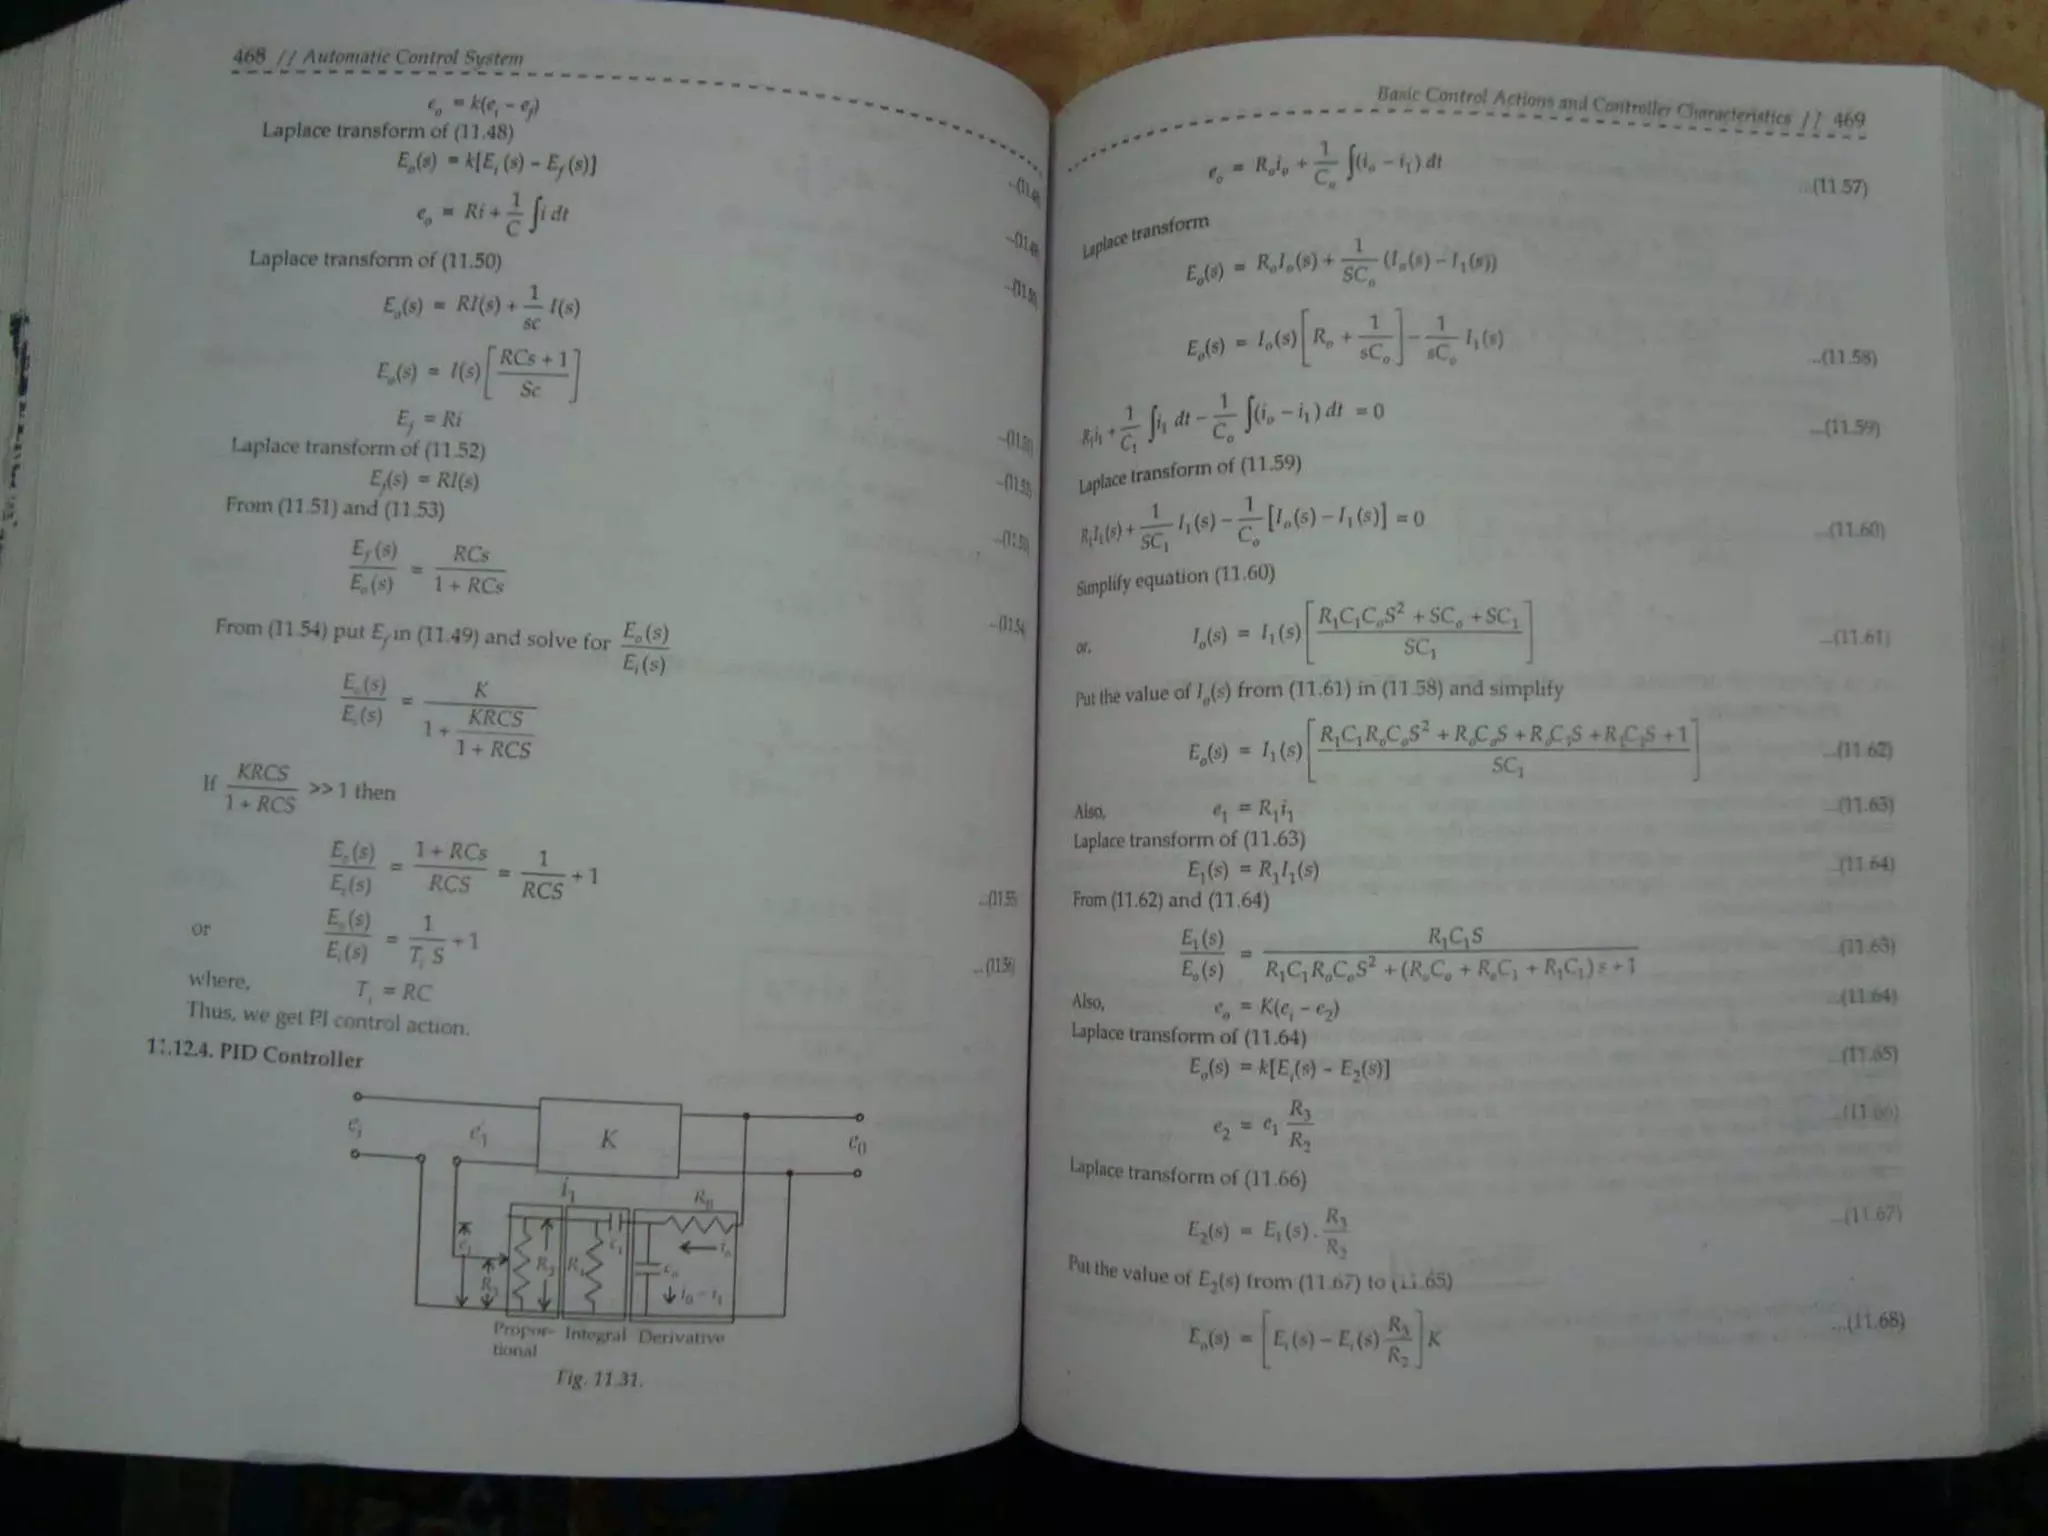 468 // Automatic Control System
e_o = k(e_i - e_f)
Laplace transform of (11.48)
E_o(s) = k[E_i (s) - E_f (s)]
e_o = Ri + 1/C ∫i dt
Laplace transform of (11.50)
E_o(s) = RI(s) + 1/sc I(s)
E_o(s) = I(s) [RCs + 1 / Sc]
E_f = Ri
Laplace transform of (11.52)
E_f(s) = RI(s)
From (11.51) and (11.53)
E_f (s) / E_o (s) = RCs / 1 + RCs
...(11.54
From (11.54) put E_f in (11.49) and solve for E_o (s) / E_i (s)
E_o (s) / E_i (s) = K / 1 + KRCS / 1 + RCS
If KRCS / 1 + RCS >> 1 then
E_o (s) / E_i (s) = 1 + RCs / RCS = 1 / RCS + 1 ...(11.55
or E_o (s) / E_i (s) = 1 / T_i S + 1 ...(11.56)
where, T_i = RC
Thus, we get PI control action.
11.12.4. PID Controller
e_i e_1 K e_0
i_1 R_0
e_1 R_3 R_2 R_1 c_1 c_o i_o
i_0 - i_1
Propor- Integral Derivative
tional
Fig. 11.31.
Basic Control Actions and Controller Characteristics // 469
e_o = R_o i_o + 1/C_o ∫(i_o - i_1) dt ...(11.57)
Laplace transform
E_o(s) = R_o I_o(s) + 1/SC_o (I_o(s) - I_1(s))
E_o(s) = I_o(s) [R_o + 1/sC_o] - 1/sC_o I_1(s) ...(11.58)
R_1 i_1 + 1/C_1 ∫i_1 dt - 1/C_o ∫(i_o - i_1) dt = 0 ...(11.59)
Laplace transform of (11.59)
R_1 I_1(s) + 1/SC_1 I_1(s) - 1/C_o [I_o(s) - I_1(s)] = 0 ...(11.60)
Simplify equation (11.60)
or, I_o(s) = I_1(s) [R_1C_1C_oS² + SC_o + SC_1 / SC_1] ...(11.61)
Put the value of I_o(s) from (11.61) in (11.58) and simplify
E_o(s) = I_1(s) [R_1C_1R_oC_oS² + R_oC_oS + R_oC_1S + R_1C_1S + 1 / SC_1] ...(11.62)
Also, e_1 = R_1 i_1 ...(11.63)
Laplace transform of (11.63)
E_1(s) = R_1 I_1(s) ...(11.64)
From (11.62) and (11.64)
E_1(s) / E_o(s) = R_1C_1S / R_1C_1R_oC_oS² + (R_oC_o + R_oC_1 + R_1C_1) s + 1 ...(11.63)
Also, e_o = K(e_i - e_2) ...(11.64)
Laplace transform of (11.64)
E_o(s) = k[E_i(s) - E_2(s)] ...(11.65)
e_2 = e_1 R_3/R_2 ...(11.66)
Laplace transform of (11.66)
E_2(s) = E_1(s) . R_3/R_2 ...(11.67)
Put the value of E_2(s) from (11.67) to (11.65)
E_o(s) = [E_i (s) - E_i (s) R_3/R_2] K ...(11.68)